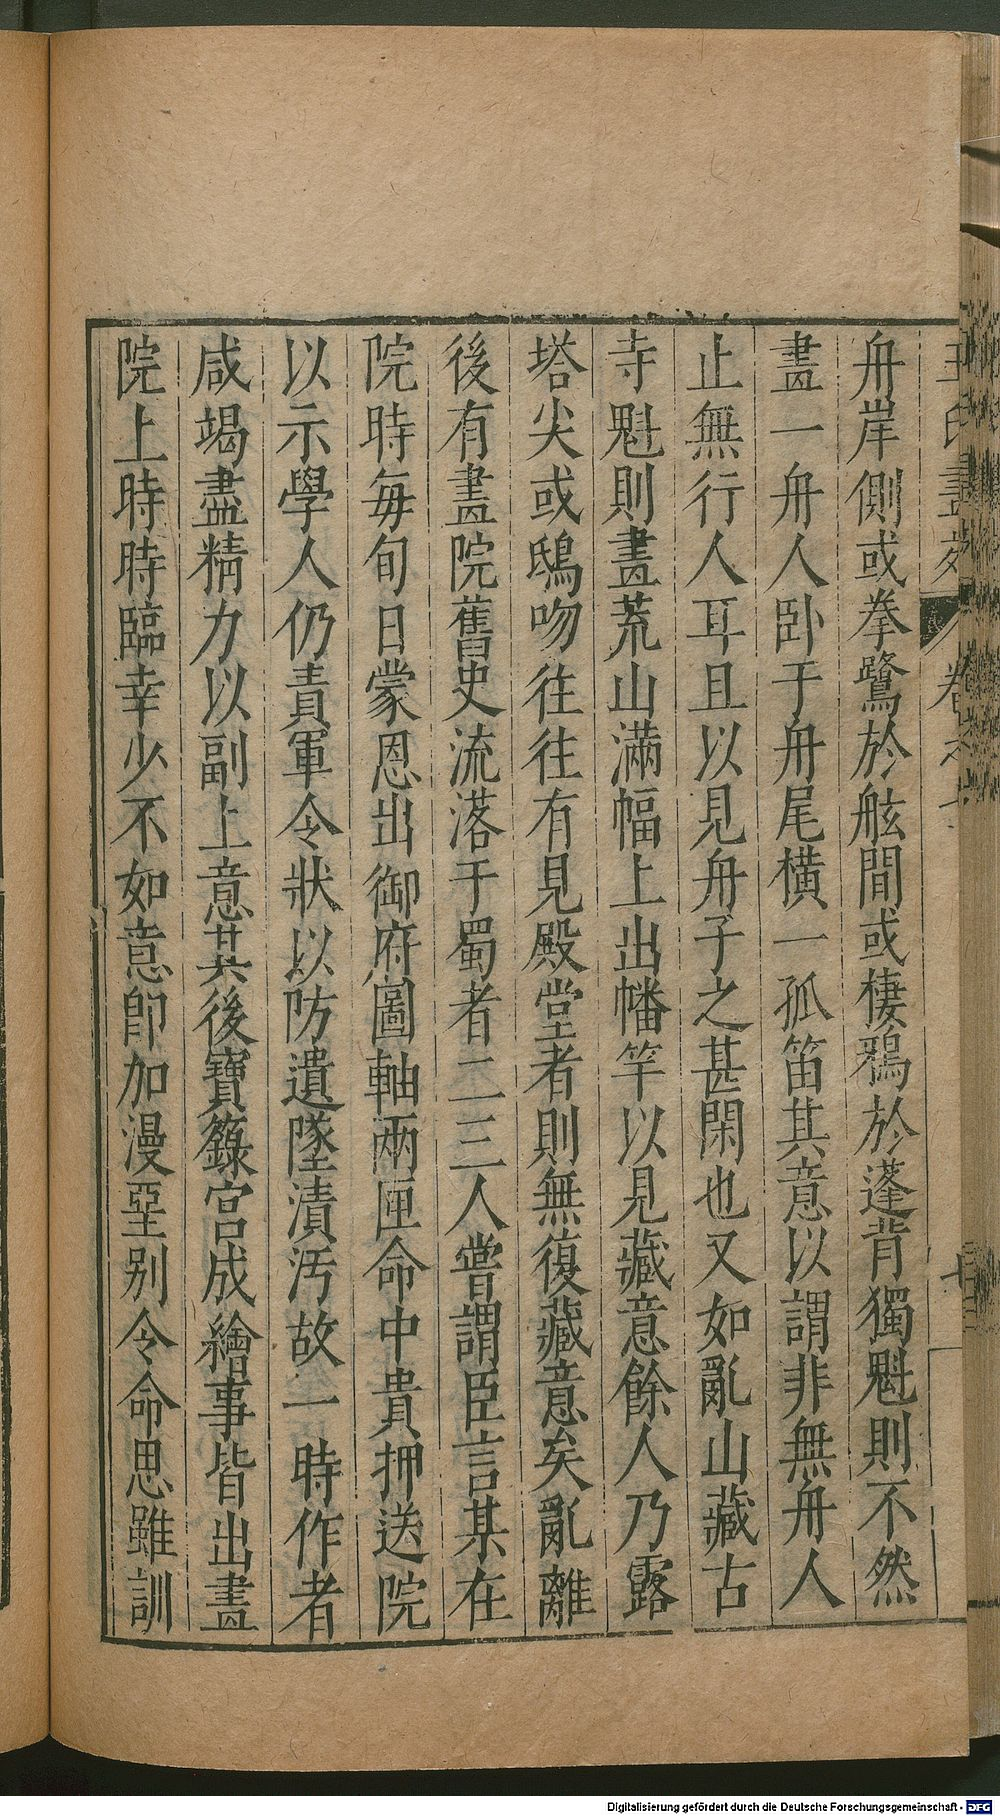 舟岸側或拳鷺於舷間或棲鴉於蓬背獨魁則不然
畫一舟人卧于舟尾橫一孤笛其意以謂非無舟人
止無行人耳且以見舟子之甚閑也又如亂山藏古
寺魁則畫荒山滿幅上出幡竿以見藏意餘人乃露
塔尖或鴟吻往往有見殿堂者則無復藏意矣亂離
後有畫院舊史流落于蜀者二三人嘗謂臣言某在
院時每旬日蒙恩出御府圖軸兩匣命中貴押送院
以示學人仍責軍令狀以防遺墜漬汚故一時作者
咸竭盡精力以副上意其後寶籙宮成繪事皆出畫
院上時時臨幸少不如意卽加漫堊别令命思雖訓
Digitalisierung gefördert durch die Deutsche Forschungsgemeinschaft - DFG